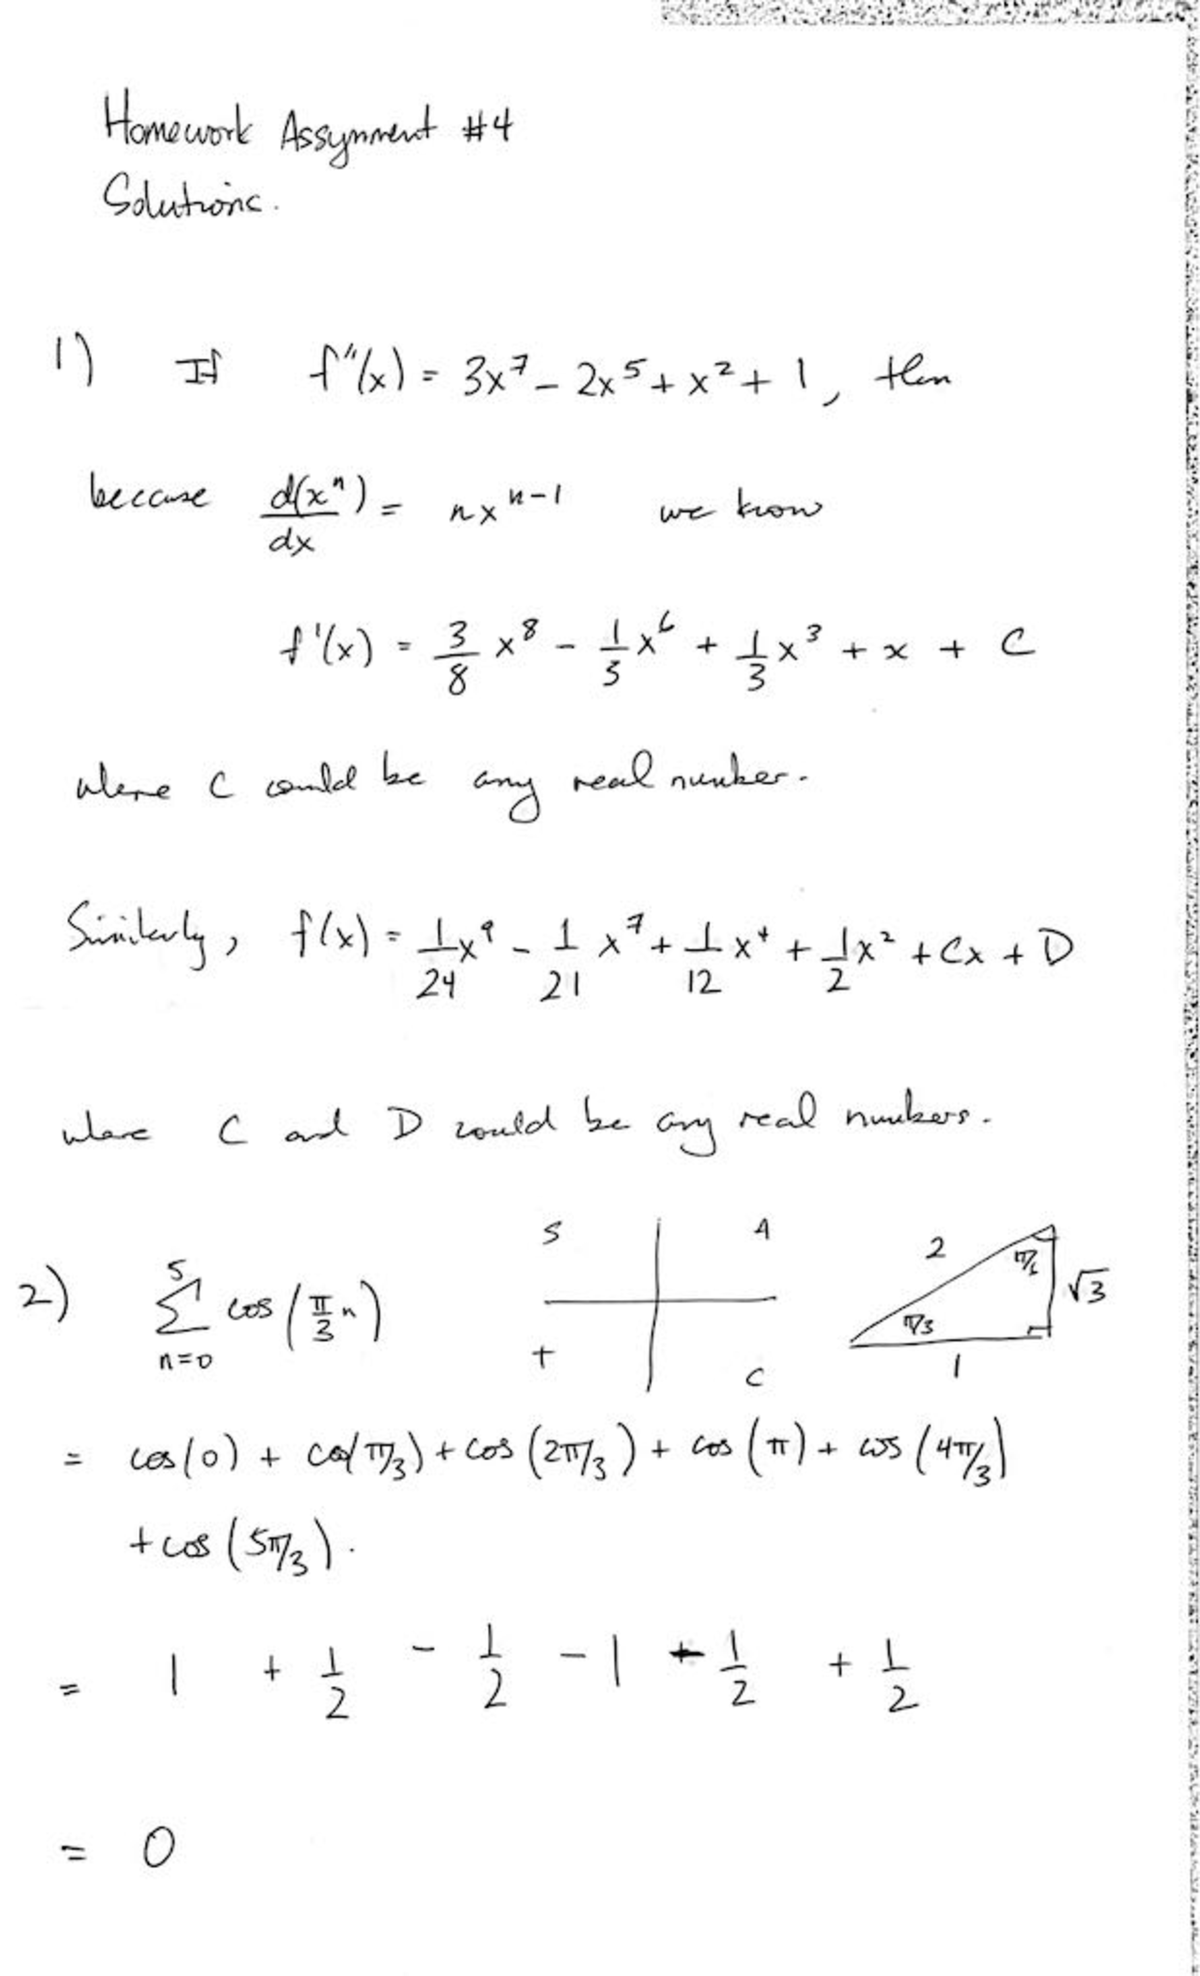 Homework Assignment #4
Solutions.
1) If f''(x) = 3x⁷ - 2x⁵ + x² + 1, then
because d(xⁿ)/dx = nxⁿ⁻¹ we know
f'(x) = 3/8 x⁸ - 1/3 x⁶ + 1/3 x³ + x + C
where C could be any real number.
Similarly, f(x) = 1/24 x⁹ - 1/21 x⁷ + 1/12 x⁴ + 1/2 x² + Cx + D
where C and D could be any real numbers.
2) 5 Σ n=0 cos(π/3 n)
S A
T C
2 π/6 √3
π/3
1
= cos(0) + cos(π/3) + cos(2π/3) + cos(π) + cos(4π/3)
+ cos(5π/3).
= 1 + 1/2 - 1/2 - 1 - 1/2 + 1/2
= 0